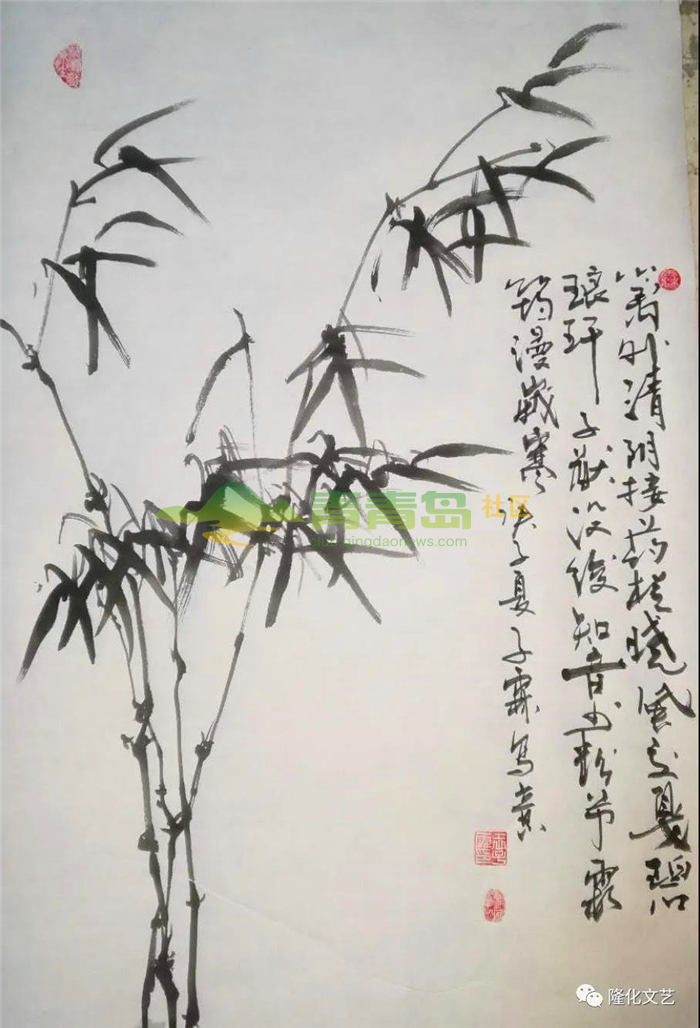 篱外清阴接药栏曉風交戛碧
琅玕子猷没後知音少粉节霜
筠漫歲寒 庚子夏子霖写意
青青岛社区
qingdaonews.com
隆化文艺